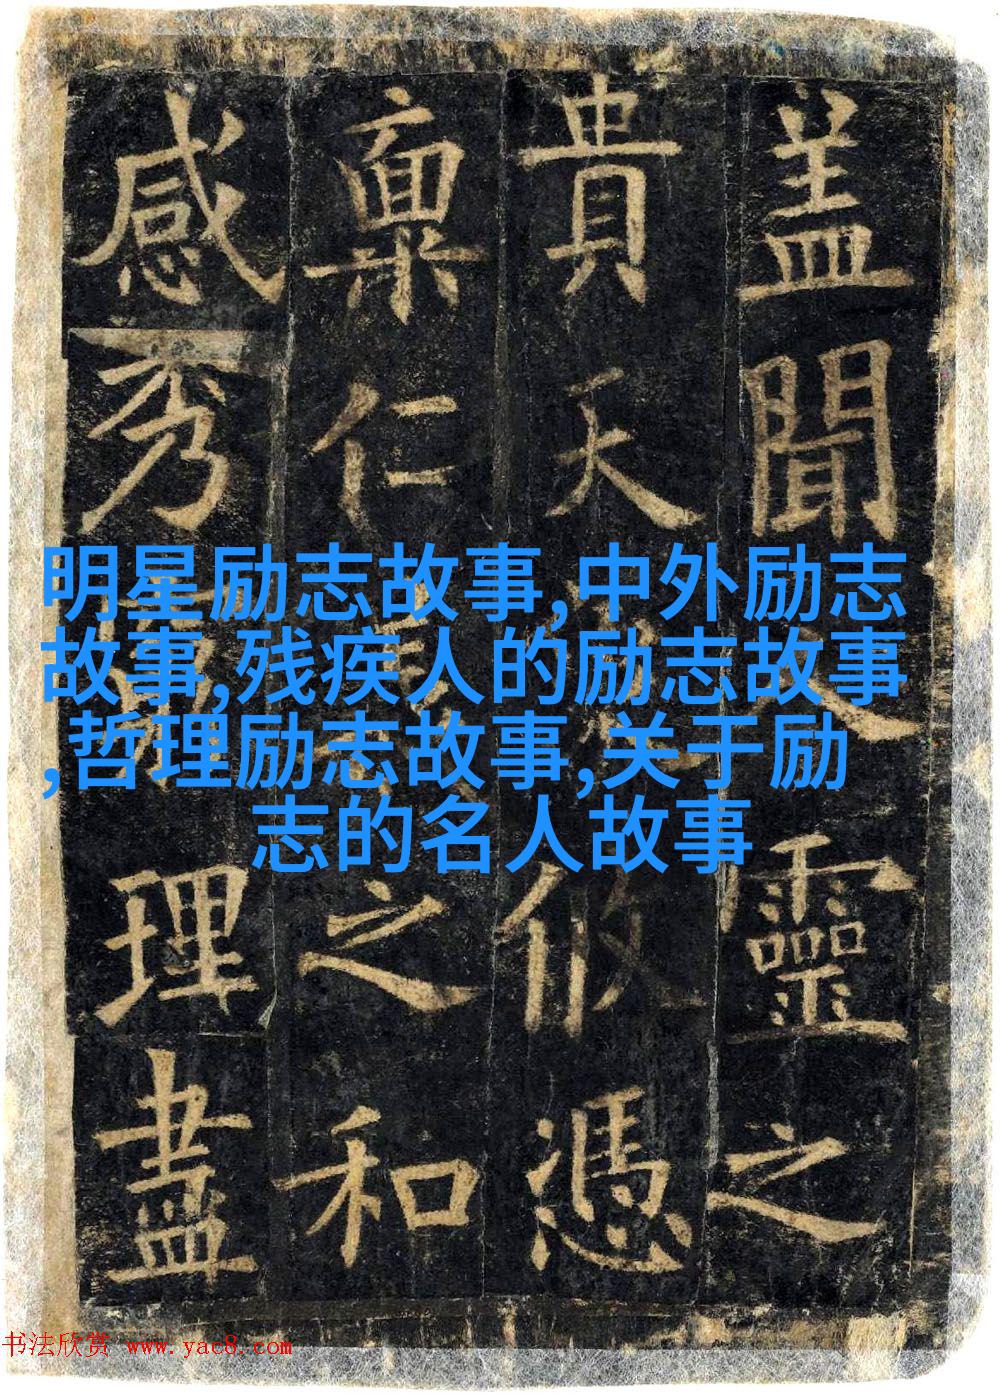 盖聞靈之
貴天攸憑
稟仁之和
感秀理盡
明星励志故事,中外励志
故事,残疾人的励志故事
,哲理励志故事,关于励
志的名人故事
书法欣赏 www.yac8.com